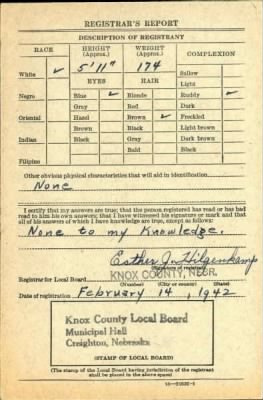 REGISTRAR'S REPORT
DESCRIPTION OF REGISTRANT
RACE HEIGHT (Approx.) WEIGHT (Approx.) COMPLEXION
White ✓ 5'11" 174 Sallow
Light
EYES HAIR
Negro Blue ✓ Blonde Ruddy ✓
Gray Red Dark
Oriental Hazel Brown ✓ Freckled
Brown Black Light brown
Indian Black Gray Dark brown
Bald Black
Filipino
Other obvious physical characteristics that will aid in identification
None
I certify that my answers are true; that the person registered has read or has had
read to him his own answers; that I have witnessed his signature or mark and that
all of his answers of which I have knowledge are true, except as follows:
None to my Knowledge.
Esther J. Hilgenkamp
(Signature of registrar)
Registrar for Local Board KNOX COUNTY, NEBR.
(Number) (City or county) (State)
Date of registration February 14, 1942
Knox County Local Board
Municipal Hall
Creighton, Nebraska
(STAMP OF LOCAL BOARD)
(The stamp of the Local Board having jurisdiction of the registrant
shall be placed in the above space)